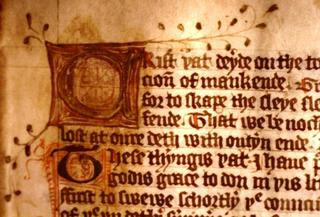 Crist yat deyde on the to
cion of mankende.
for to skape the sleye sle
fende. That we be noch
lost at oure deth with outyn ende.
These thyngis yat I haue p
godis grace to don in yis
first to swewe schortly yᵉ
of